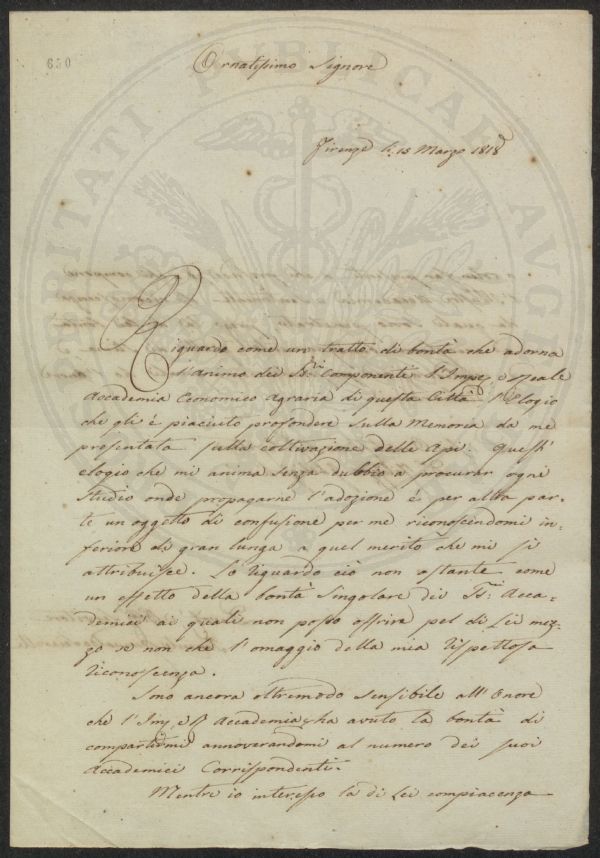 630
Ornatissimo Signore
Firenze li 15 Marzo 1818
Riguardo come un tratto di bontà che adorna
l'animo dei SS.ri Componenti l'Imp. e Reale
Accademia Economico Agraria di questa Città l'Elogio
che gli è piaciuto profondere sulla Memoria da me
presentata sulla coltivazione delle Api. Quest'
elogio che mi anima senza dubbio a procurar ogni
studio onde propagarne l'adozione é per altra par-
te un oggetto di confusione per me riconoscendomi in-
feriore di gran lunga a quel merito che mi si
attribuisce. Lo riguardo ciò non ostante come
un effetto della bontà singolare dei SS.ri Acca-
demici ai quali non posso offrire pel di Lei mez-
zo se non che l'omaggio della mia rispettosa
riconoscenza.
Sono ancora oltremodo sensibile all'onore
che l'Imp. e R. Accademia ha avuto la bontà di
compartirmi annoverandomi al numero dei suoi
Accademici Corrispondenti.
Mentre io interesso la di Lei compiacenza
PUBLICAE